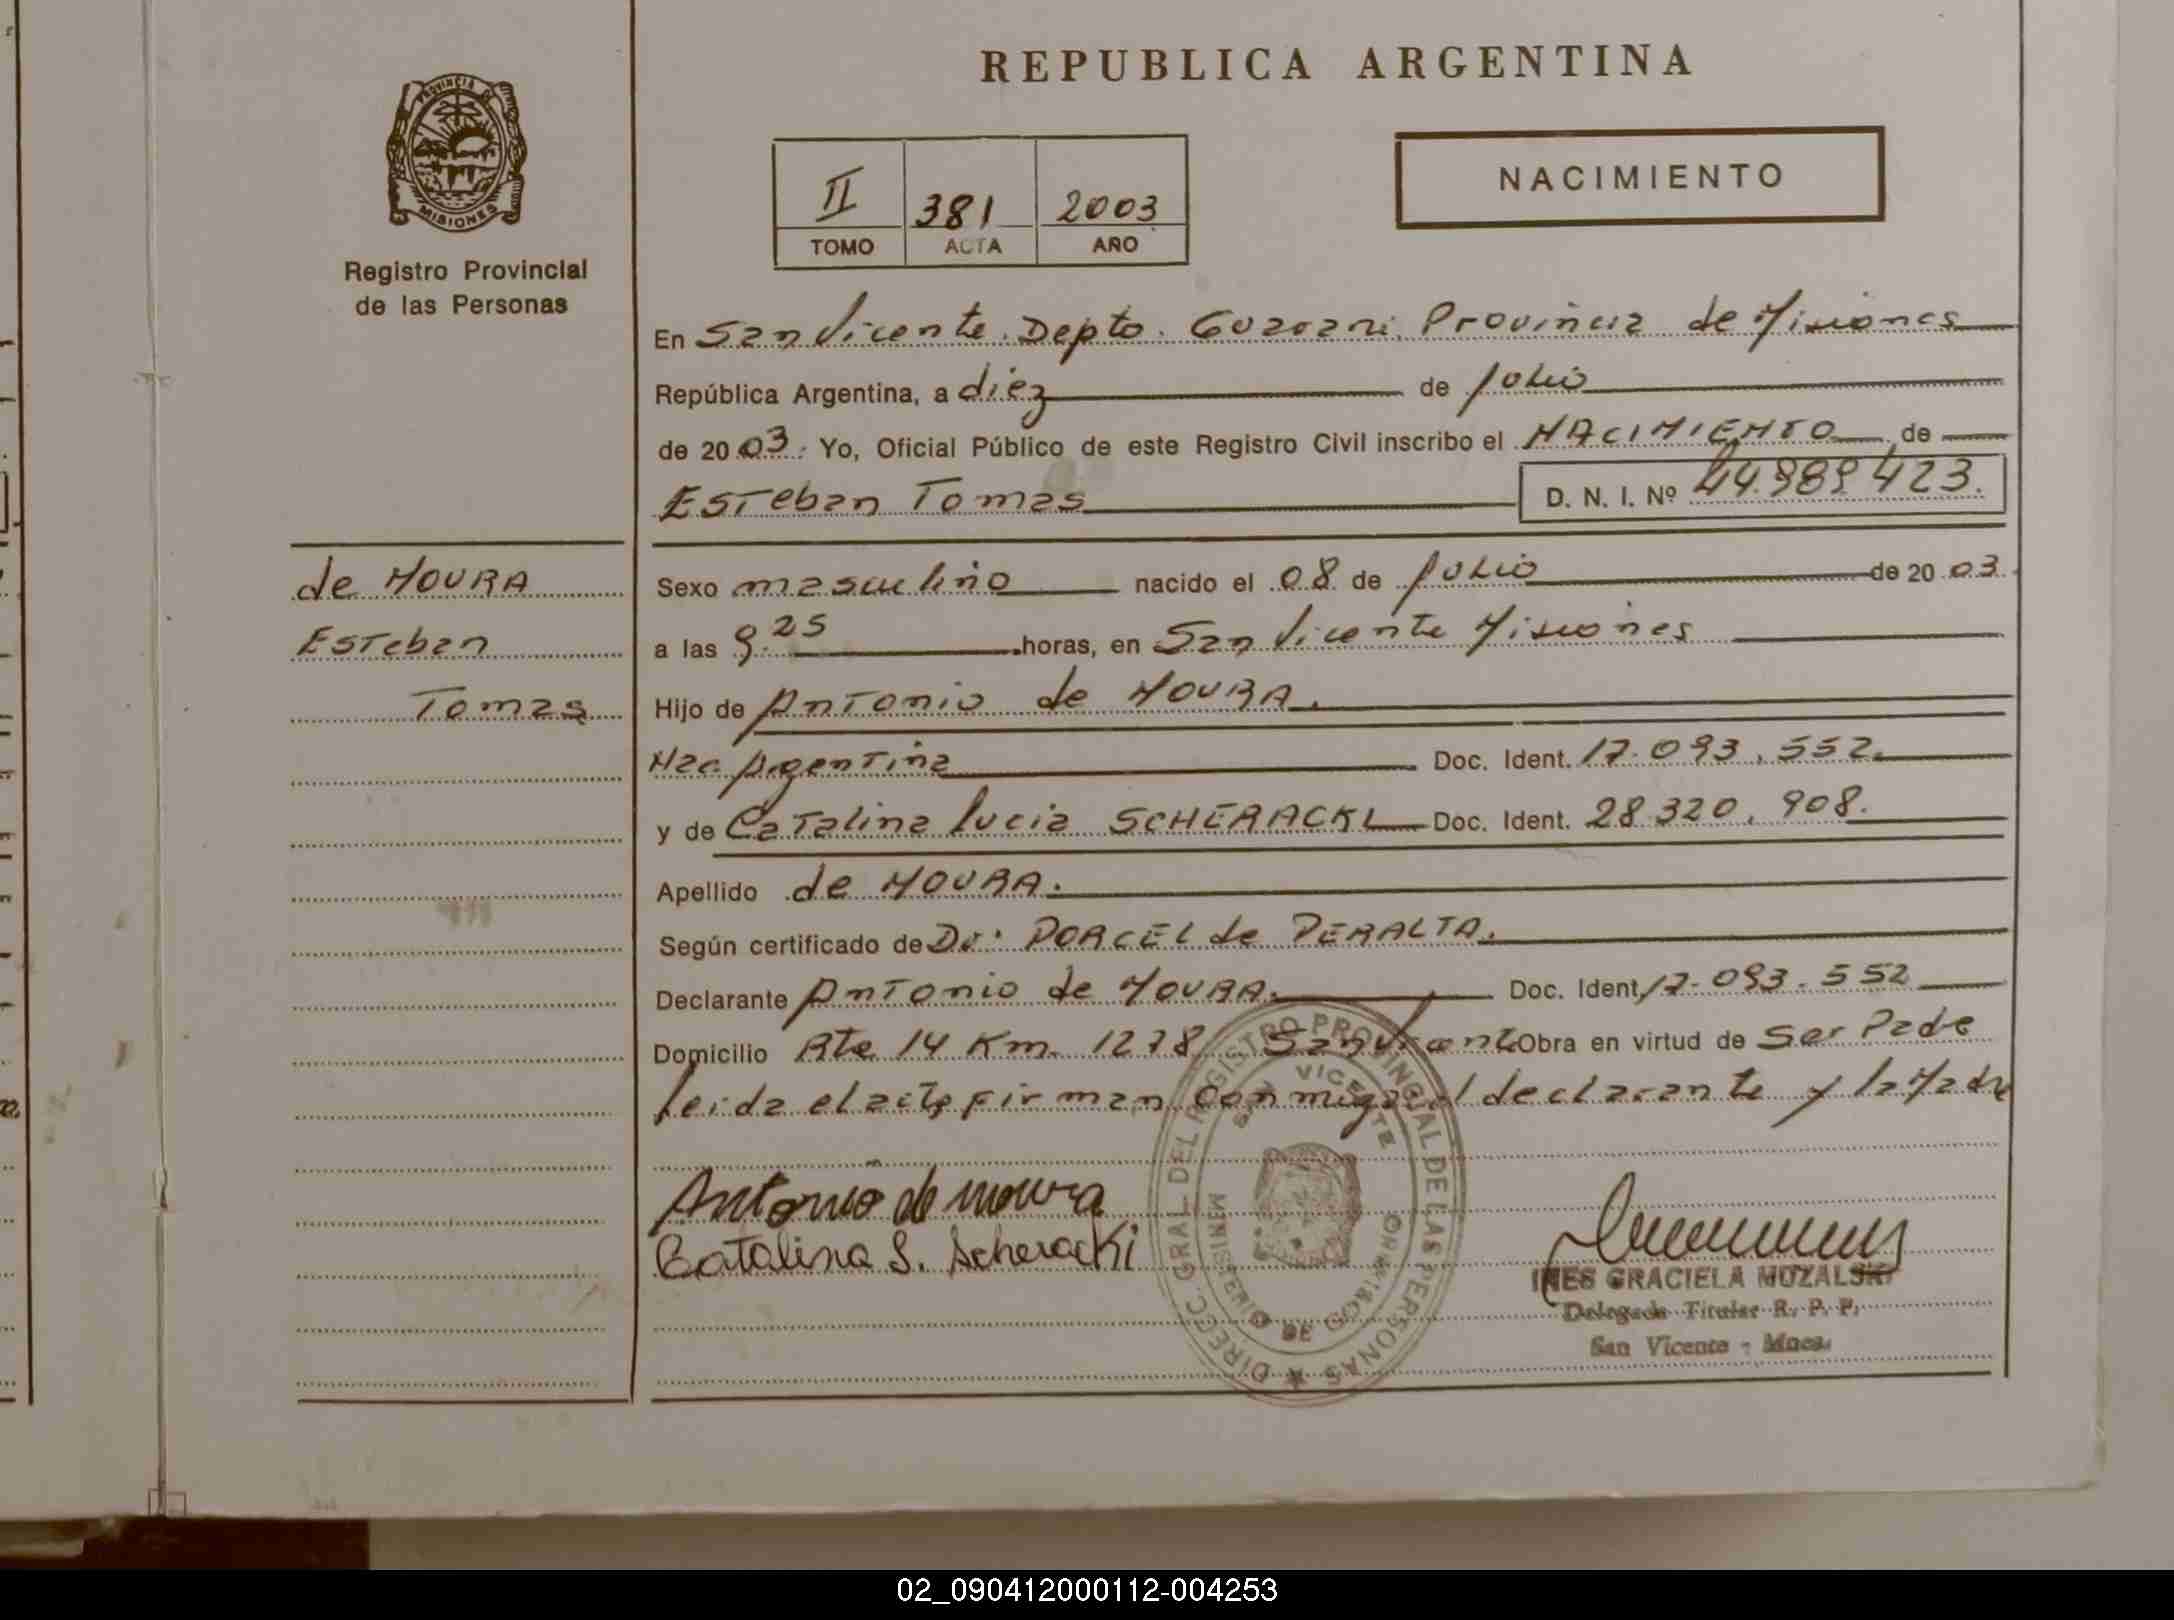 REPUBLICA ARGENTINA
PROVINCIA DE
MISIONES
Registro Provincial
de las Personas
II 381 2003
TOMO ACTA AÑO
NACIMIENTO
En San Vicente Depto. Guarani, Provincia de Misiones
República Argentina, a diez de Julio
de 2003. Yo, Oficial Público de este Registro Civil inscribo el NACIMIENTO de
Esteban Tomas D. N. I. Nº 44.989.423.
de MOURA
Esteban
Tomas
Sexo masculino nacido el 08 de Julio de 2003.
a las 9.25 horas, en San Vicente Misiones
Hijo de Antonio de MOURA.
Nac Argentina Doc. Ident. 17.093.552.
y de Catalina Lucia SCHERACKI Doc. Ident. 28.320.908.
Apellido de MOURA.
Según certificado de Dr. DORCEL de PERALTA.
Declarante Antonio de MOURA. Doc. Ident. 17.093.552
Domicilio Rta 14 Km. 1278 San Vicente Obra en virtud de Ser Padre
leida el acta firman conmigo el declarante y la Madre
Antonio de moura
Catalina S. Scheracki
DIRECC. GRAL. DEL REGISTRO PROVINCIAL DE LAS PERSONAS
SAN VICENTE
MINISTERIO DE GOBIERNO
INES GRACIELA MUZALSKI
Delegada Titular R. P. P.
San Vicente - Mnes.
02_090412000112-004253